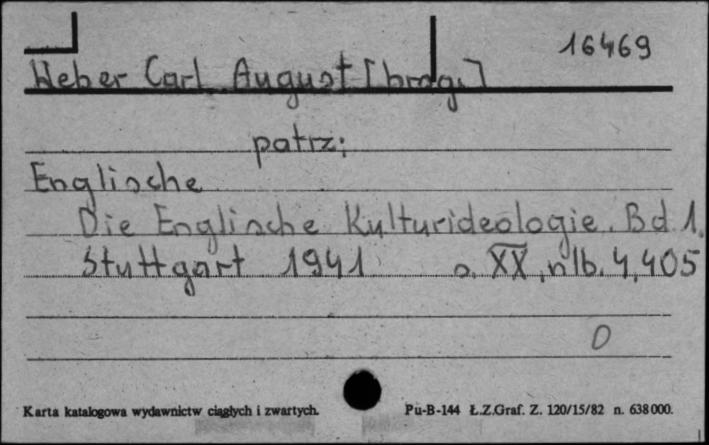 16469
Weber Carl August [hrdg.]
patrz:
Englische
Die Englische Kulturideologie. Bd 1.
Stuttgart 1941 s. XX, nlb. 4, 405
0
Karta katalogowa wydawnictw ciągłych i zwartych. Pu-B-144 Ł.Z.Graf. Z. 120/15/82 n. 638000.